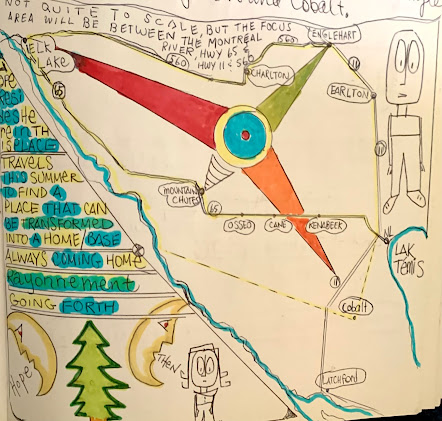 Cobalt.
NOT QUITE TO SCALE, BUT THE FOCUS
AREA WILL BE BETWEEN THE MONTREAL
RIVER, HWY 65 &
(560), HWY 11 & 560
ELK
LAKE
560
ENGLEHART
11
CHARLTON
EARLTON
65
11
HOPE
RESI
DES HE
RE IN TH
IS PLACE
TRAVELS
THIS SUMMER
TO FIND A
PLACE THAT CAN
BE TRANSFORMED
INTO A HOME/BASE
ALWAYS COMING HOME
Rayonnement
GOING FORTH
MOUNTAIN
CHUTES
65
OSSEO
CANE
KENABECK
NL
LAK
TEMIS
11
Cobalt
LATCHFORD
Hope
THEN